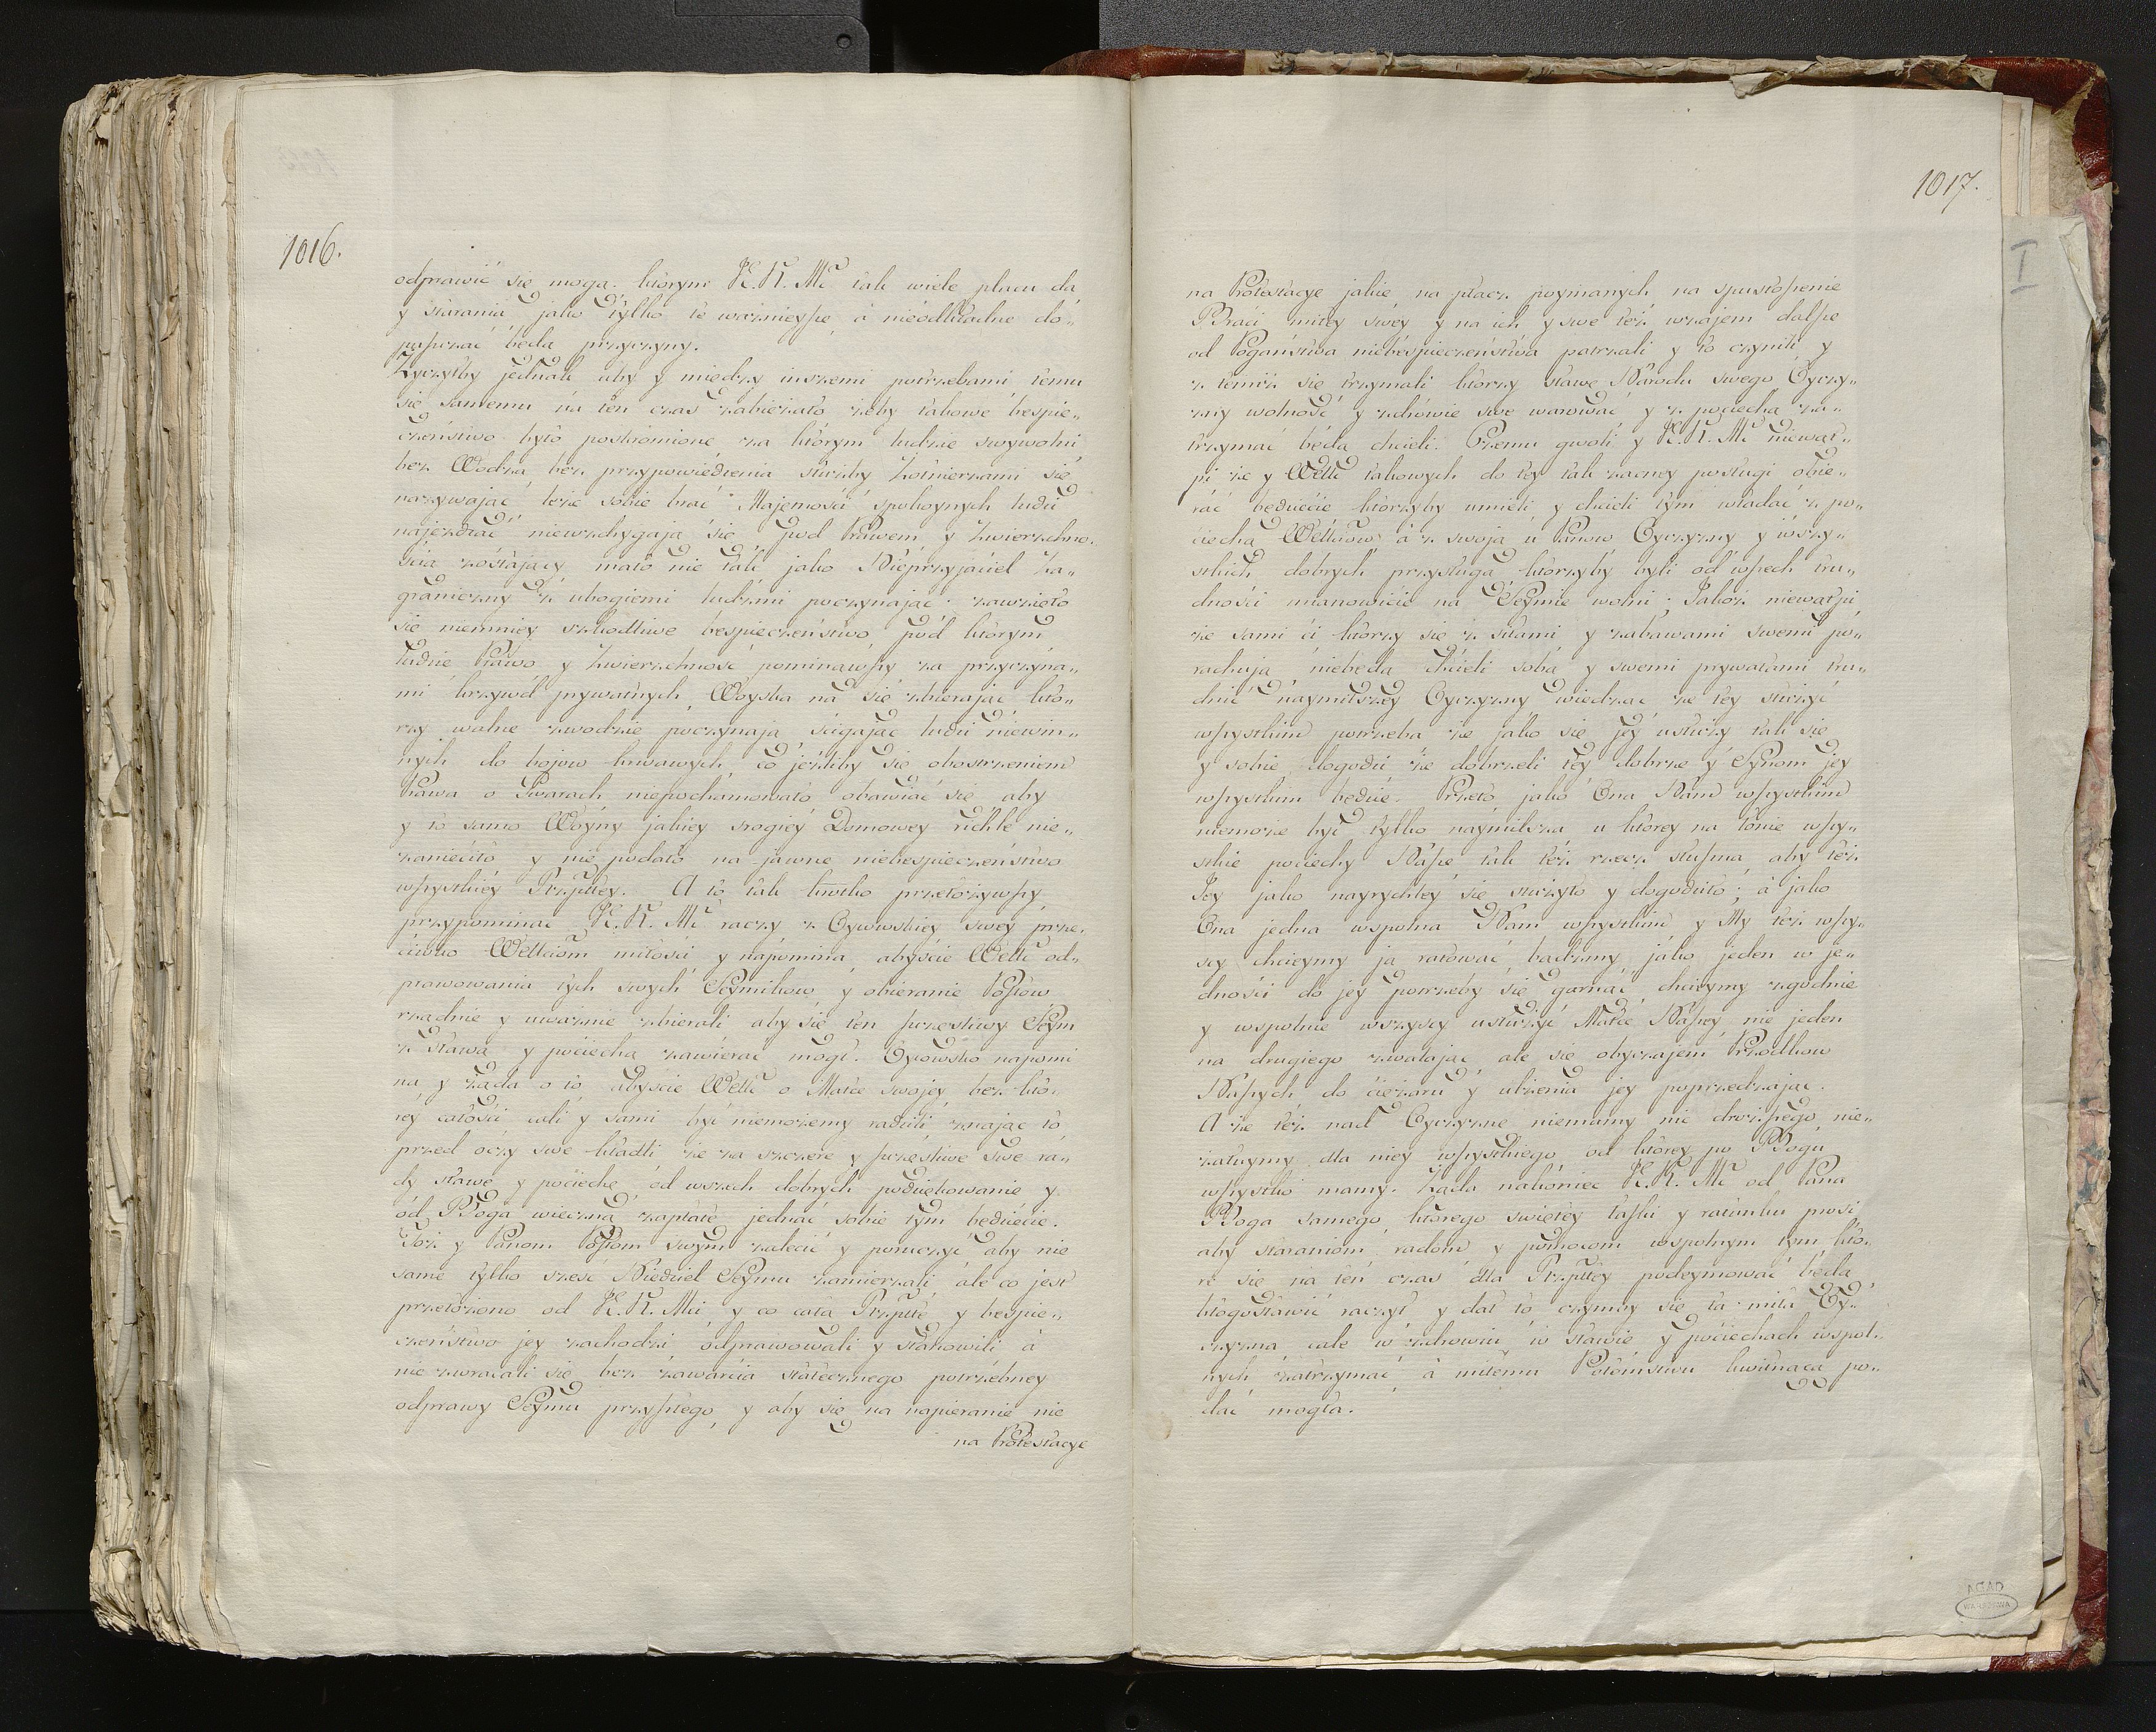 1016.
odprawić się mogą. ktorym J.K.Mć tak wiele placu da
y starania jako tylko te ważnieysze à nieodkładne do„
puszczać będą przyczyny.
Życzyłby jednak aby y między inszemi potrzebami temu
się samemu na ten czas zabieżało żeby takowe bespie„
czeństwo było poskromione za którym ludzie swywolni
bez Wodza, bez przypowiedzenia służby żołnierzami się
nazywając leże sobie brać Majemości spokoynych ludzi
najezdzać niewzdrygają się pod Prawem y zwierzchno„
ścią zostający mało nie tak jako Nieprzyjaciel Za„
graniczny z ubogiemi ludzmi poczynając. zawzięło
się niemniey szkodliwe bespieczeństwo pod ktorym
ludzie Prawo y Zwierzchność pominąwszy za przyczyna„
mi krzywd prywatnych, Woyska na się zbierając kto„
rzy walne zwodzie poczynają ściągając ludzi niewin„
nych do bojow krwawych, co jeżliby się obostrzeniem
Prawa o Gwatach niepochamowało obawiać się aby
y to samo Woyny jakiey srogiey Domowey richle nie„
zanieciło y nie podało na jawne niebespieczeństwo
wszystkiey Rzpltey. A to tak krotko przełożywszy
przypominać J.K.Mć raczy z Oycowskiey swey prze„
ciwko WMciom miłości y napomina abyście WMć od„
prawowania tych swych Seymikow y obieranie Posłow
rządnie y uważnie zbierali aby się ten szczęśliwy Seym
z sławą y pociechą zawierać mogł. Oycowsko napomi
na y żąda o to abyście WMć o Matce swojey bez kto„
rey całości cali y sami być niemożemy radzili znając to
przed oczy swe kładli że za szczere y szczęśliwe swe ra„
dy sławę y pociechę od wszech dobrych podziękowanie y
od Boga wieczną zapłatę jednać sobie tym będziecie.
Toż y Panom Posłom swym zalecić y poruczyć aby nie
same tylko sześć Niedziel Seymu zamierzali ale co jest
przełożono od J.K.Mci y co całą Rzpltę y bespie„
czeństwo jey zachodzi odprawowali y stanowili à
nie zwracali się bez zawarcia statecznego potrzebney
odprawy Seymu przyszłego y aby się na napieranie nie
na Protestacye
1017.
na Protestacye jakie, na płacz poymanych na spustoszenie
Braci miłey swey y na ich y swe też wzajem dalsze
od Pogaństwa niebespieczeństwa patrzali y to czynili y
z temiż się trzymali ktorzy sławę Narodu swego Oyczy„
zny wolność y zdrowie swe warować y z pociechą za„
trzymać będą chcieli. Czemu gwoli y J.K.Mć niewąt„
pi że y WMć takowych do tey tak zacney posługi obie„
rać będziecie ktorzyby umieli y chcieli tym władać z po„
ciechą WMciow à z swoją u Panow Oyczyzny y wszy„
stkich dobrych przysługą ktorzyby byli od wszech tru„
dności mianowicie na Seymie wolni; Jakoż niewątpi
że sami ci ktorzy się z siłami y zabawami swemi po„
rachują niebędą chcieli sobą y swemi prywatami tru„
dnić naymilszey Oyczyzny wiedząc że tey służyć
wszystkim potrzeba że jako się jey usłuży tak się
y sobie dogodzi że dobrzeli tey dobrze y Synom jey
wszystkim będzie. Przeto jako Ona Nam wszystkim
niemoże być tylko naymilsza u ktorey na łonie wszy„
stkie pociechy Nasze tak też rzecz słuszna aby też
Jey jako nayrychley się służyło y dogodziło; à jako
Ona jedna wspolna Nam wszystkim y My też wszy„
scy chcieymy ją ratować bądzmy jako jeden w je„
dności do jey potrzeby się garnąć chcieymy zgodnie
y wspolnie wszyscy usłużyć Matce Naszey nie jeden
na drugiego zwalając ale się obyczajem Przodkow
Naszych do ciężaru y ulżenia jey poprzedzając.
A że też nad Oyczyznę niemamy nic droższego nie„
żałuymy dla niey wszystkiego od ktorey po Bogu
wszystko mamy. Żąda nakoniec J.K.Mć od Pana
Boga samego ktorego swiętey łaski y ratunku prosi
aby staraniom radom y pomocom wspolnym tym kto„
re się na ten czas dla Rzpltey podeymować będą
błogosławić raczył y dał to czymby się ta miła Oy„
czyzna cale w zdrowiu w sławie y pociechach wspol„
nych zatrzymać à miłemu Potomstwu kwitnącą po„
dać mogła.
I
AGAD
WARSZAWA